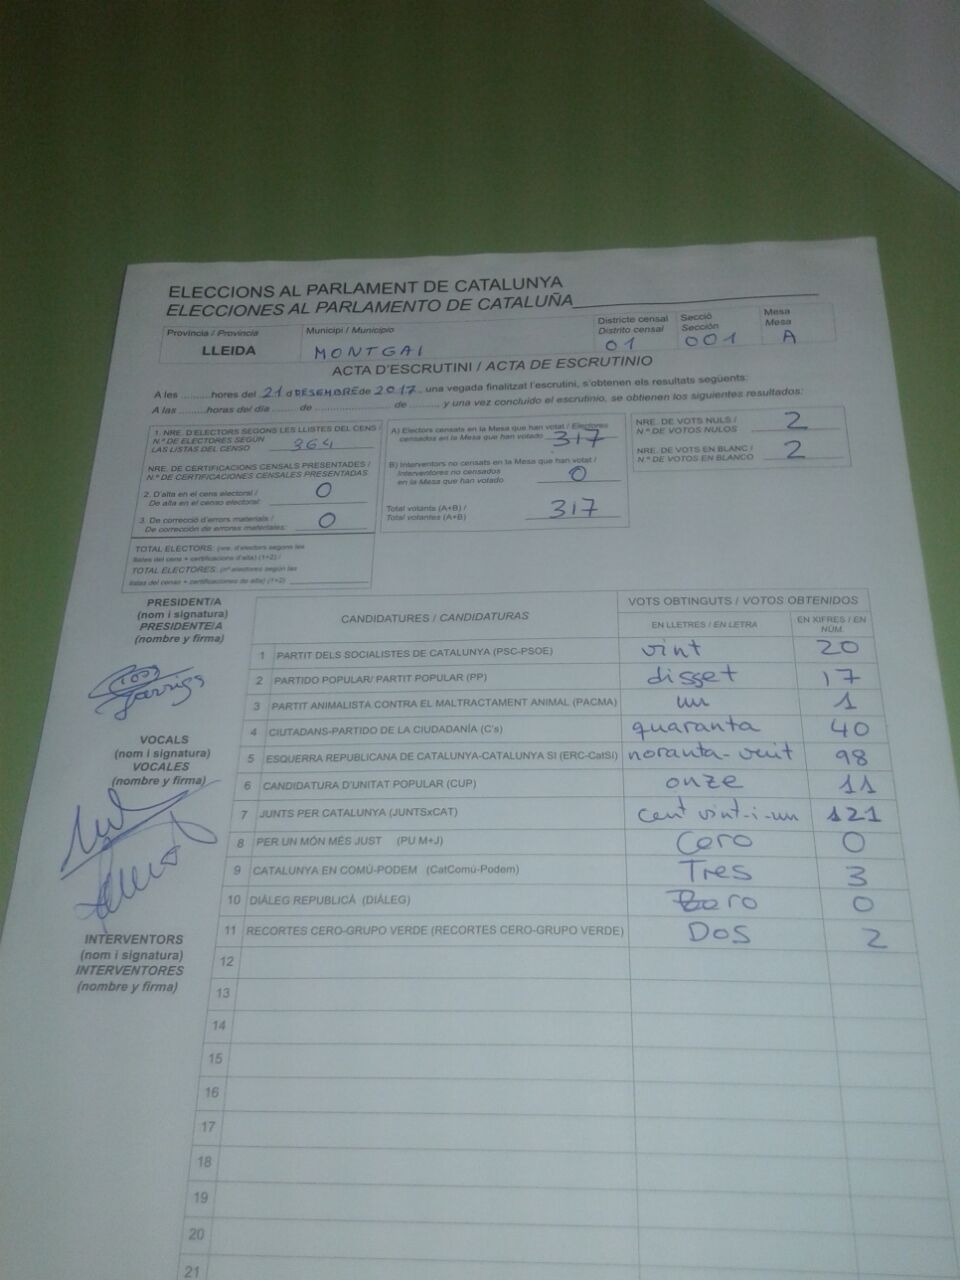 ELECCIONS AL PARLAMENT DE CATALUNYA
ELECCIONES AL PARLAMENTO DE CATALUÑA
Província / Provincia
LLEIDA
Municipi / Municipio
MONTGAI
Districte censal
Distrito censal
01
Secció
Sección
001
Mesa
Mesa
A
ACTA D'ESCRUTINI / ACTA DE ESCRUTINIO
A les ......... hores del 21 d DESEMBRE de 2017, una vegada finalitzat l'escrutini, s'obtenen els resultats següents:
A las ......... horas del día ....... de ........................... de ......... y una vez concluido el escrutinio, se obtienen los siguientes resultados:
1. NRE. D'ELECTORS SEGONS LES LLISTES DEL CENS /
N.º DE ELECTORES SEGÚN
LAS LISTAS DEL CENSO 364
NRE. DE CERTIFICACIONS CENSALS PRESENTADES /
N.º DE CERTIFICACIONES CENSALES PRESENTADAS
2. D'alta en el cens electoral /
De alta en el censo electoral: 0
3. De correcció d'errors materials /
De corrección de errores materiales: 0
TOTAL ELECTORS: (nre. d'electors segons les
llistes del cens + certificacions d'alta) (1+2) /
TOTAL ELECTORES: (nº electores según las
listas del censo + certificaciones de alta) (1+2)
A) Electors censats en la Mesa que han votat / Electores
censados en la Mesa que han votado 317
B) Interventors no censats en la Mesa que han votat /
Interventores no censados
en la Mesa que han votado 0
Total votants (A+B) /
Total votantes (A+B) 317
NRE. DE VOTS NULS /
N.º DE VOTOS NULOS 2
NRE. DE VOTS EN BLANC /
N.º DE VOTOS EN BLANCO 2
PRESIDENT/A
(nom i signatura)
PRESIDENTE/A
(nombre y firma)
Garriga
VOCALS
(nom i signatura)
VOCALES
(nombre y firma)
INTERVENTORS
(nom i signatura)
INTERVENTORES
(nombre y firma)
CANDIDATURES / CANDIDATURAS
VOTS OBTINGUTS / VOTOS OBTENIDOS
EN LLETRES / EN LETRA
EN XIFRES / EN NÚM.
1 PARTIT DELS SOCIALISTES DE CATALUNYA (PSC-PSOE) vint 20
2 PARTIDO POPULAR/ PARTIT POPULAR (PP) disset 17
3 PARTIT ANIMALISTA CONTRA EL MALTRACTAMENT ANIMAL (PACMA) un 1
4 CIUTADANS-PARTIDO DE LA CIUDADANÍA (C's) quaranta 40
5 ESQUERRA REPUBLICANA DE CATALUNYA-CATALUNYA SI (ERC-CatSí) noranta-vuit 98
6 CANDIDATURA D'UNITAT POPULAR (CUP) onze 11
7 JUNTS PER CATALUNYA (JUNTSxCAT) cent vint-i-un 121
8 PER UN MÓN MÉS JUST (PU M+J) Cero 0
9 CATALUNYA EN COMÚ-PODEM (CatComú-Podem) Tres 3
10 DIÀLEG REPUBLICÀ (DIÀLEG) 0
11 RECORTES CERO-GRUPO VERDE (RECORTES CERO-GRUPO VERDE) DOS 2
12
13
14
15
16
17
18
19
20
21